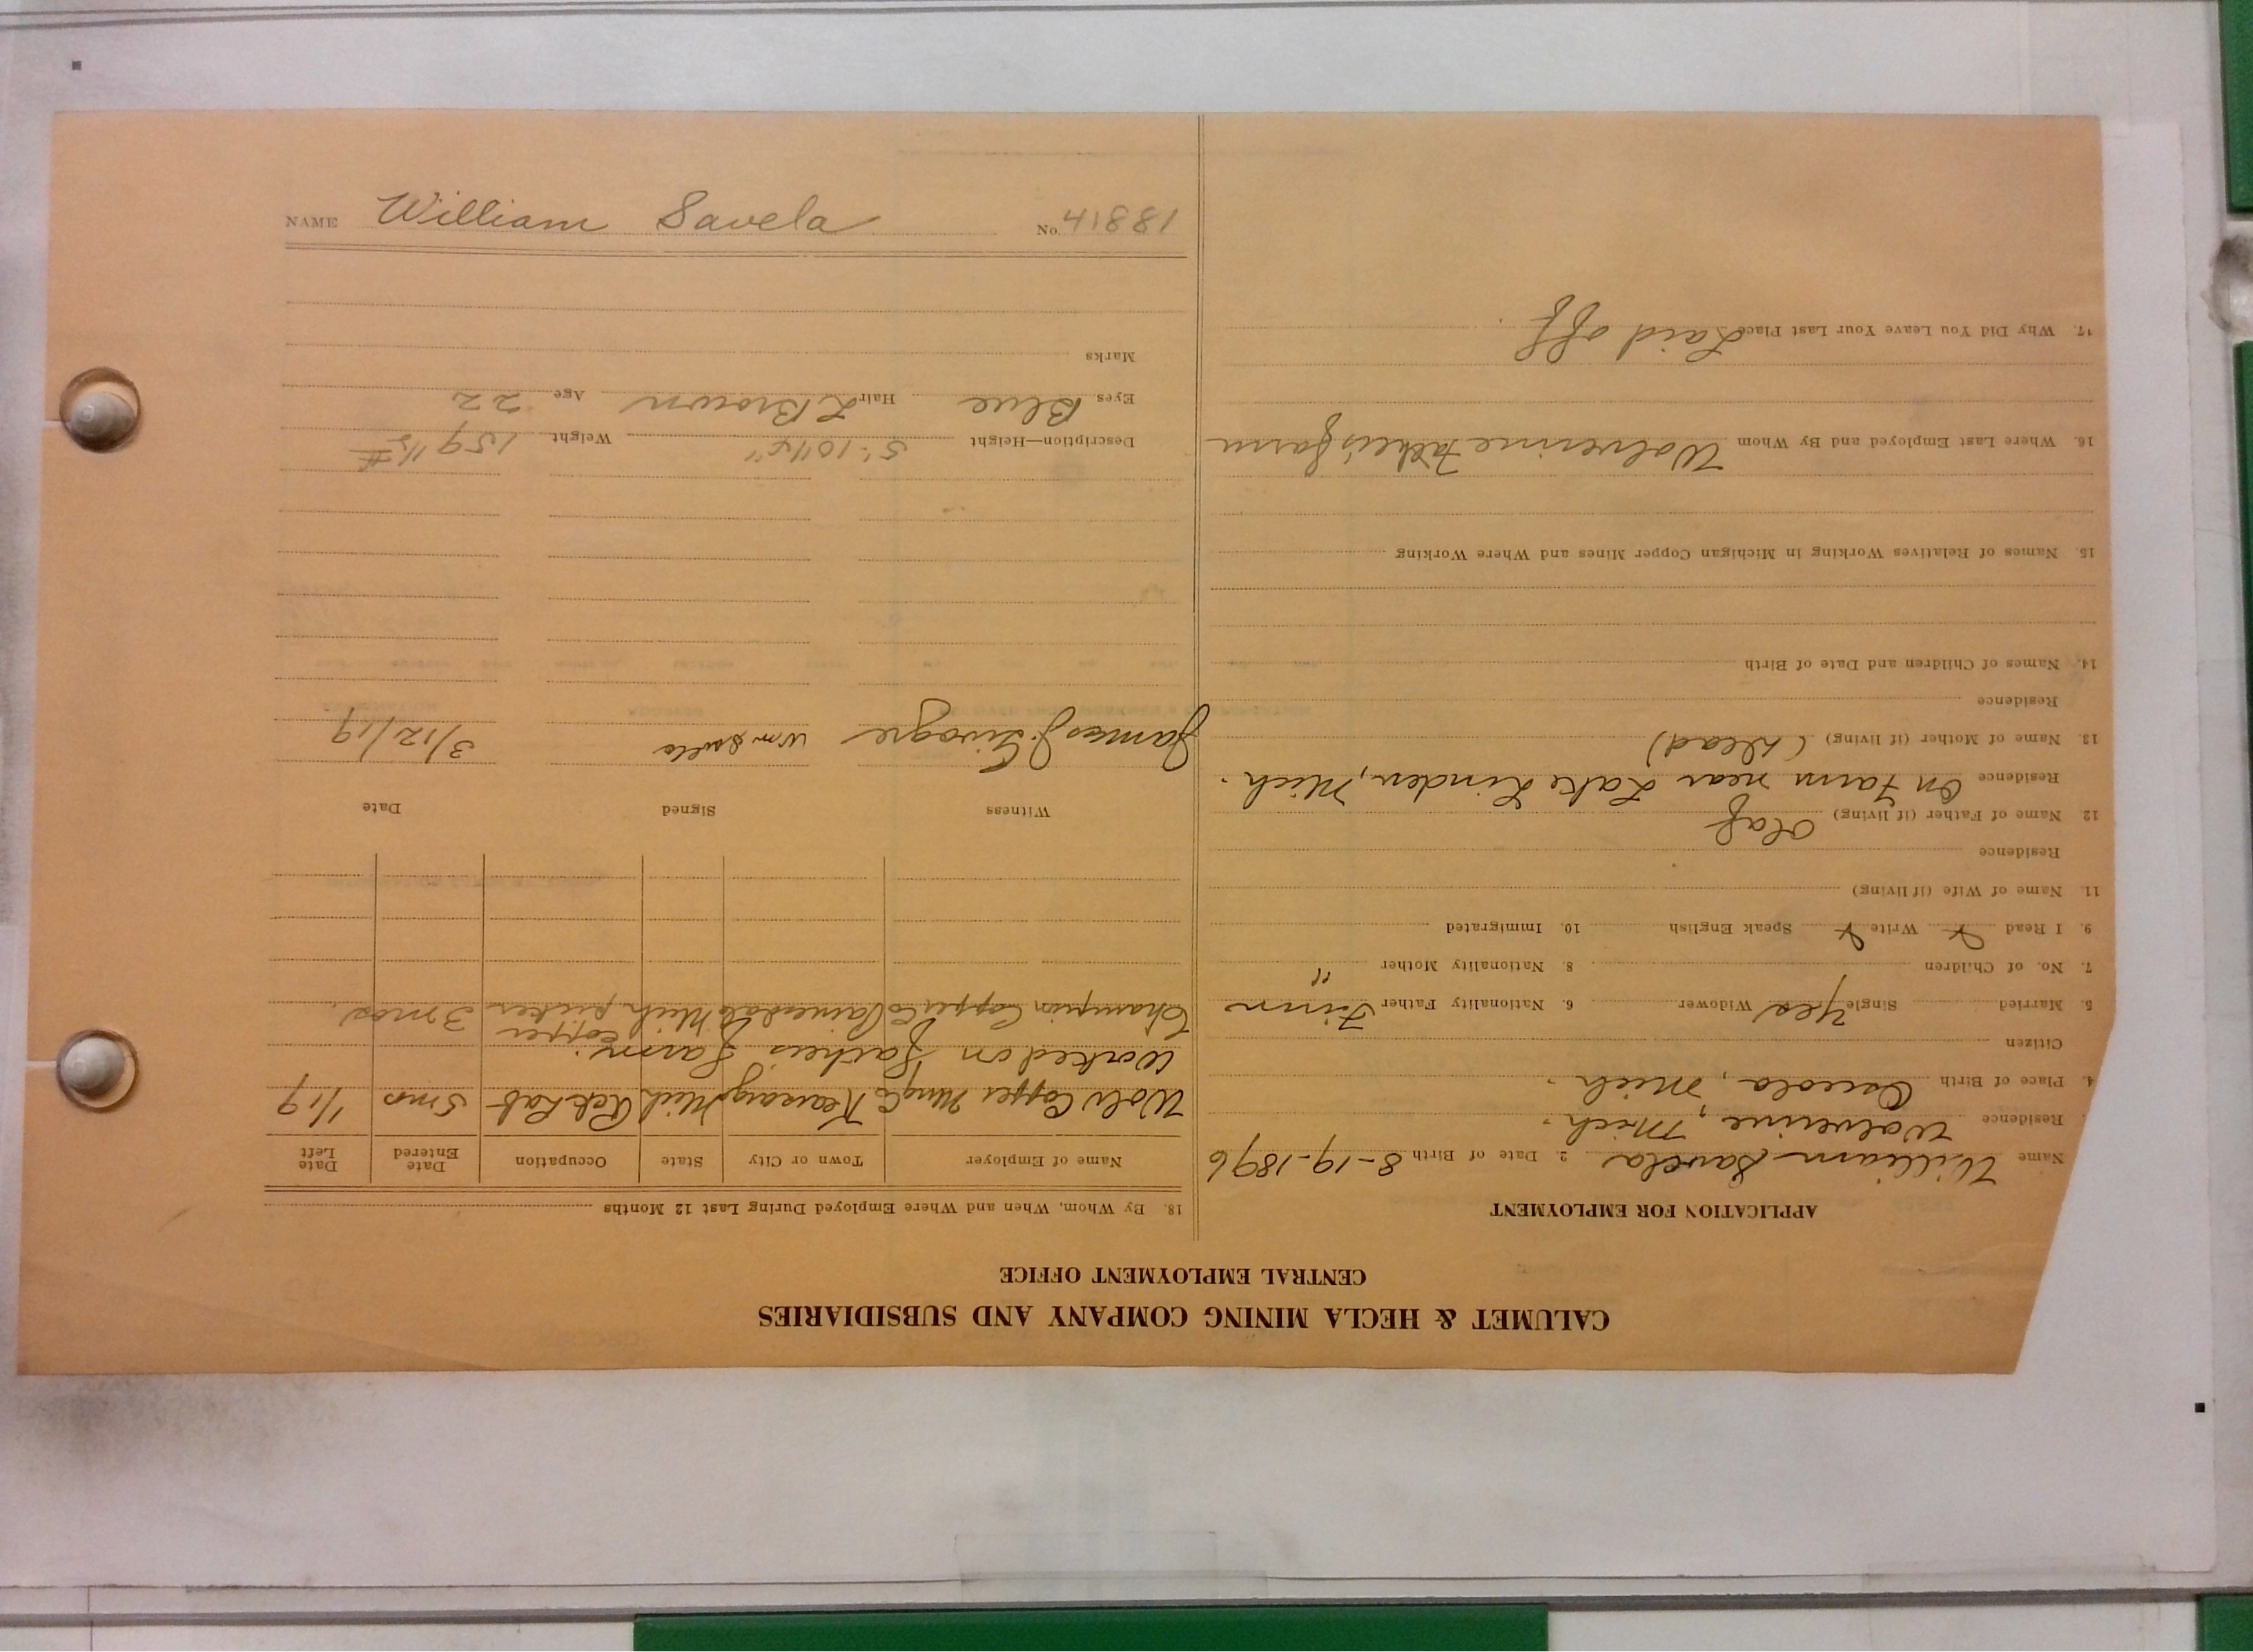 CALUMET & HECLA MINING COMPANY AND SUBSIDIARIES
CENTRAL EMPLOYMENT OFFICE
APPLICATION FOR EMPLOYMENT
Name William Savela 2. Date of Birth 8-19-1896
Residence Wolverine, Mich.
4. Place of Birth Osceola, Mich.
Citizen
5. Married Single Yes Widower 6. Nationality Father Finn
7. No. of Children 8. Nationality Mother "
9. I Read Write Speak English 10. Immigrated
11. Name of Wife (if living)
Residence
12. Name of Father (if living) Olaf
Residence On Farm near Lake Linden, Mich.
13. Name of Mother (if living) (Dead)
Residence
14. Names of Children and Date of Birth
15. Names of Relatives Working in Michigan Copper Mines and Where Working
16. Where Last Employed and By Whom Wolverine Father's farm
17. Why Did You Leave Your Last Place Laid off.
18. By Whom, When and Where Employed During Last 12 Months
Name of Employer Town or City State Occupation Date Entered Date Left
Wolv Copper Mng Co Kearsarge Mich Lab 5 mos 1/19
Worked on father's farm.
Champion Copper Co Painesdale Mich copper picker 3 mos.
Witness Signed Date
James J. Wm Savela 3/12/19
Description—Height 5'-10 1/2" Weight 159 1/2 #
Eyes Blue Hair L. Brown Age 22
Marks
NAME William Savela No. 41881